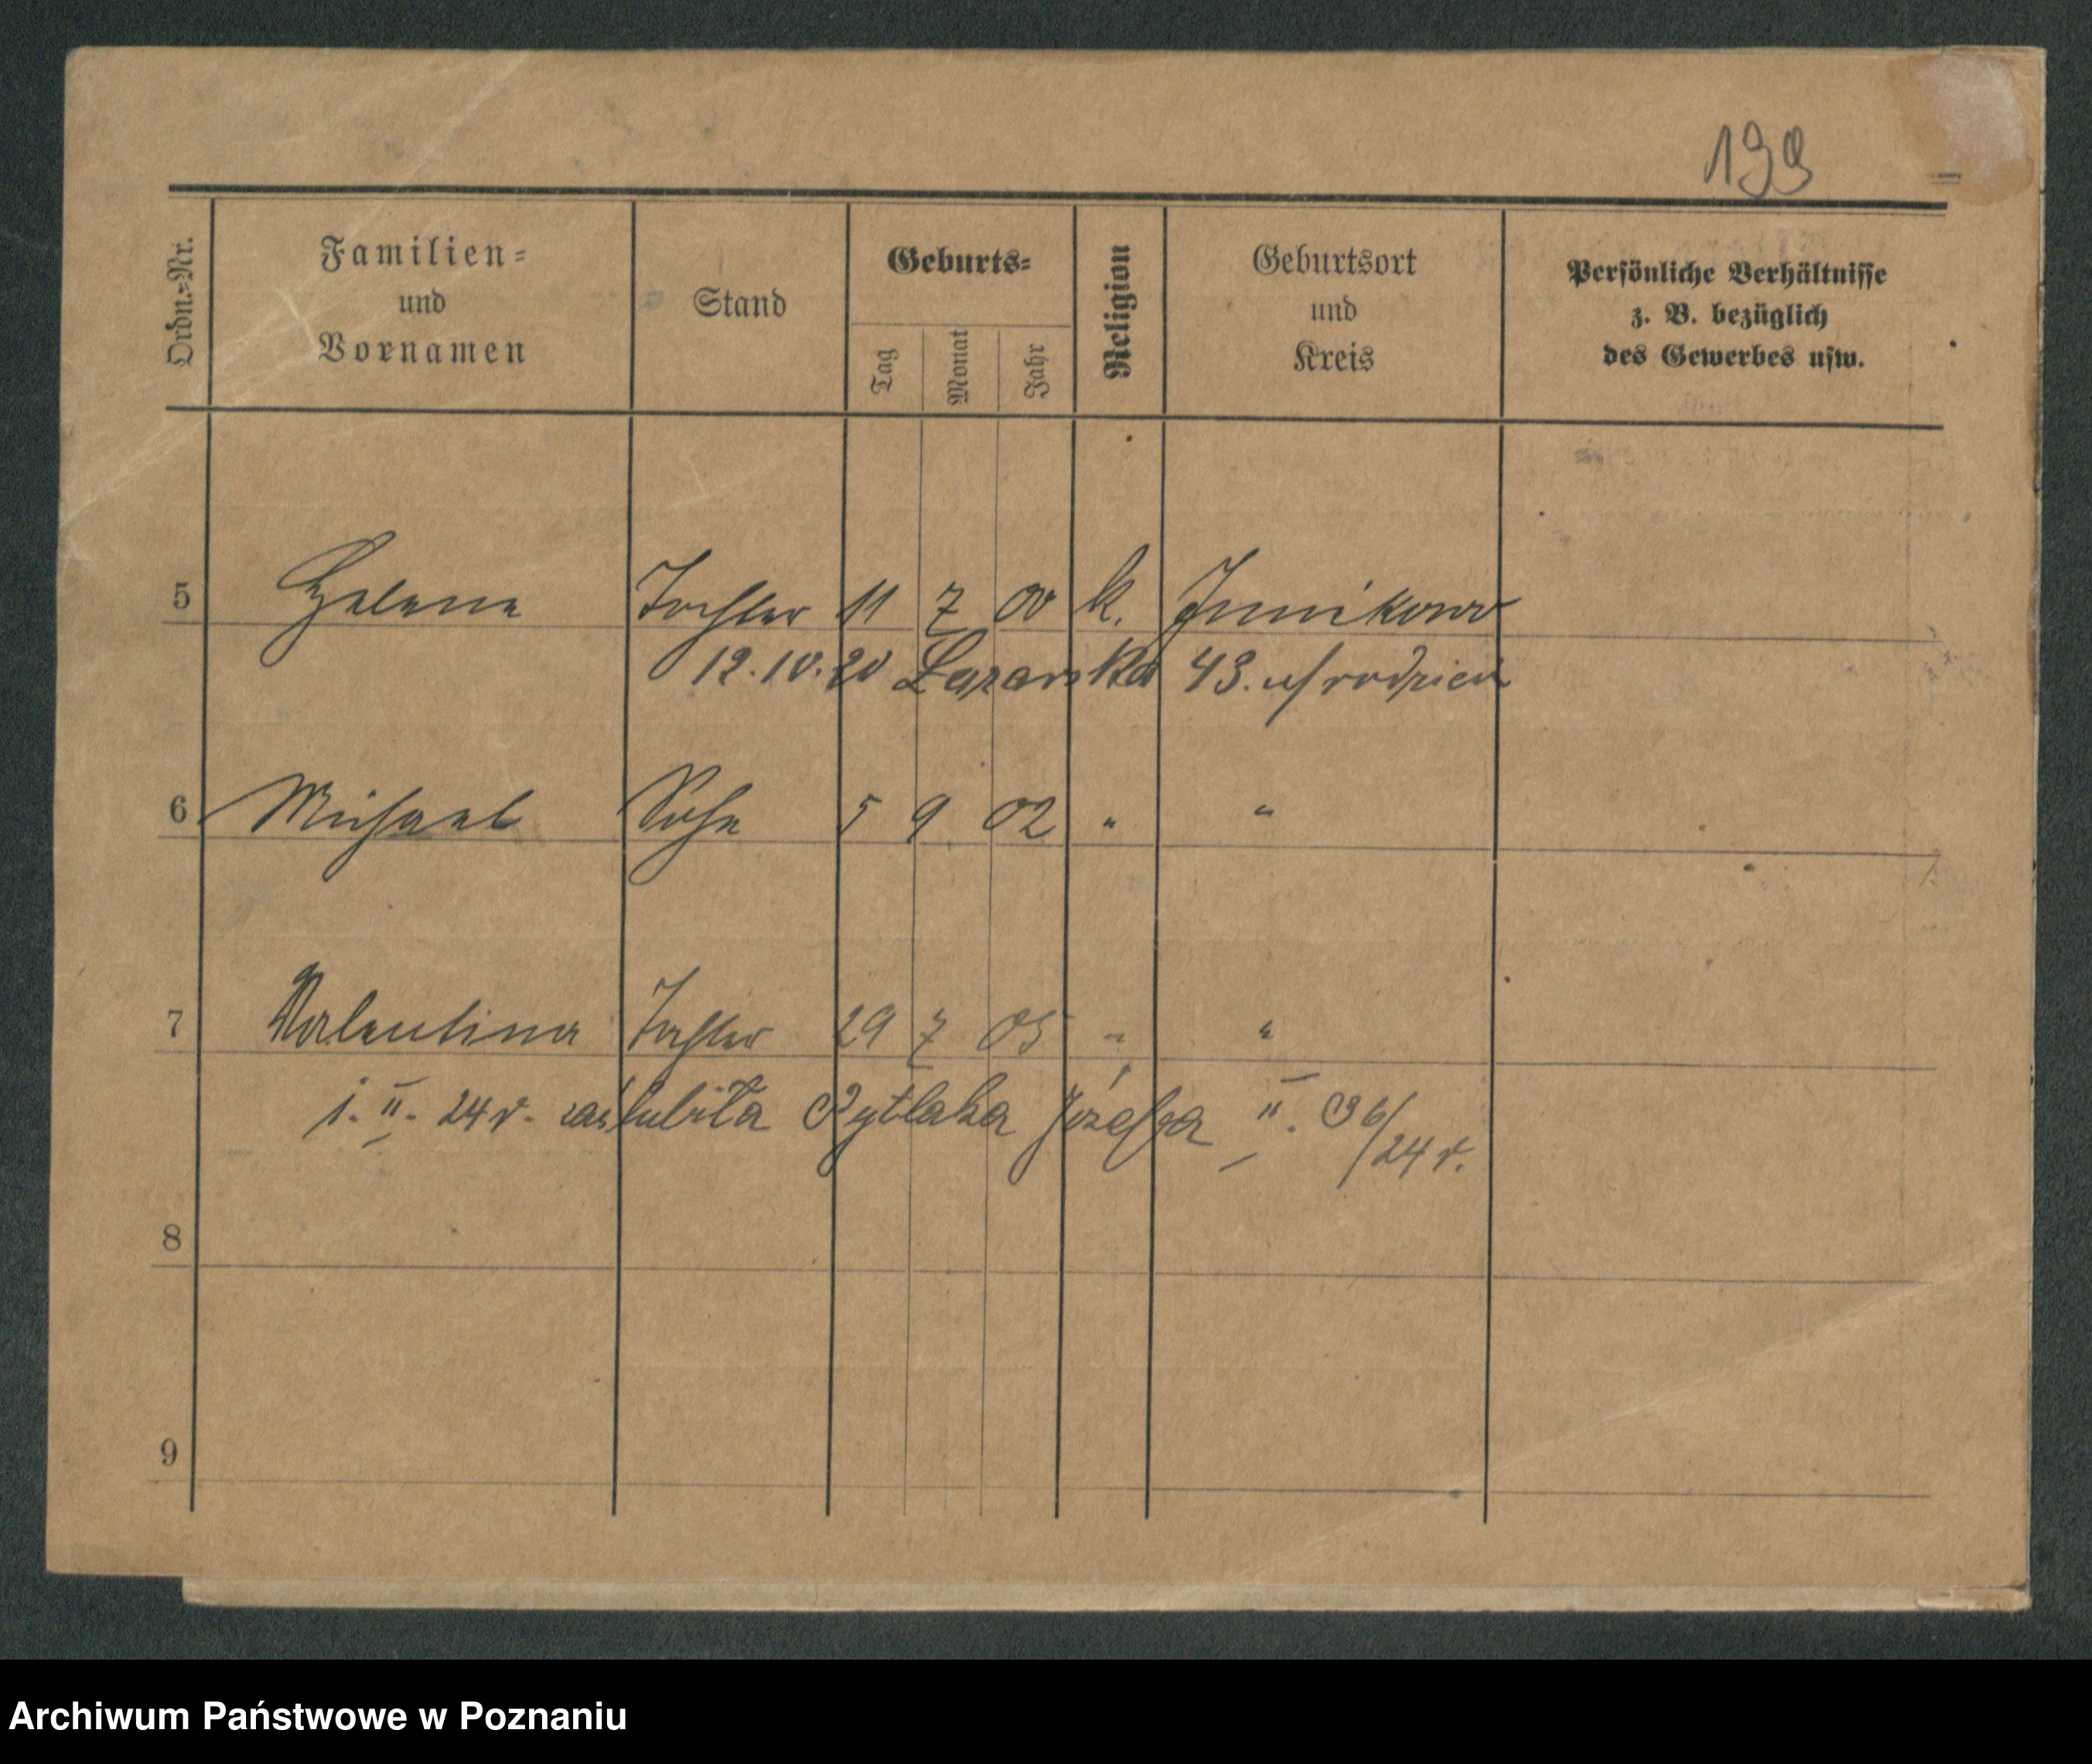 199
Ordn.-Nr. Familien- und Vornamen Stand Geburts- Tag Monat Jahr Religion Geburtsort und Kreis Persönliche Verhältnisse z. B. bezüglich des Gewerbes usw.
5 Helene Tochter 11 7 00 k. Junikowo
12.10.20 Lazarska 43. u/rodzicó
6 Michael Sohn 5 9 02 " "
7 Valentina Tochter 29 7 05 " "
1. II. 24 r. zaślubiła Pytlaka Józefa II. 36/24 r.
8
9
Archiwum Państwowe w Poznaniu